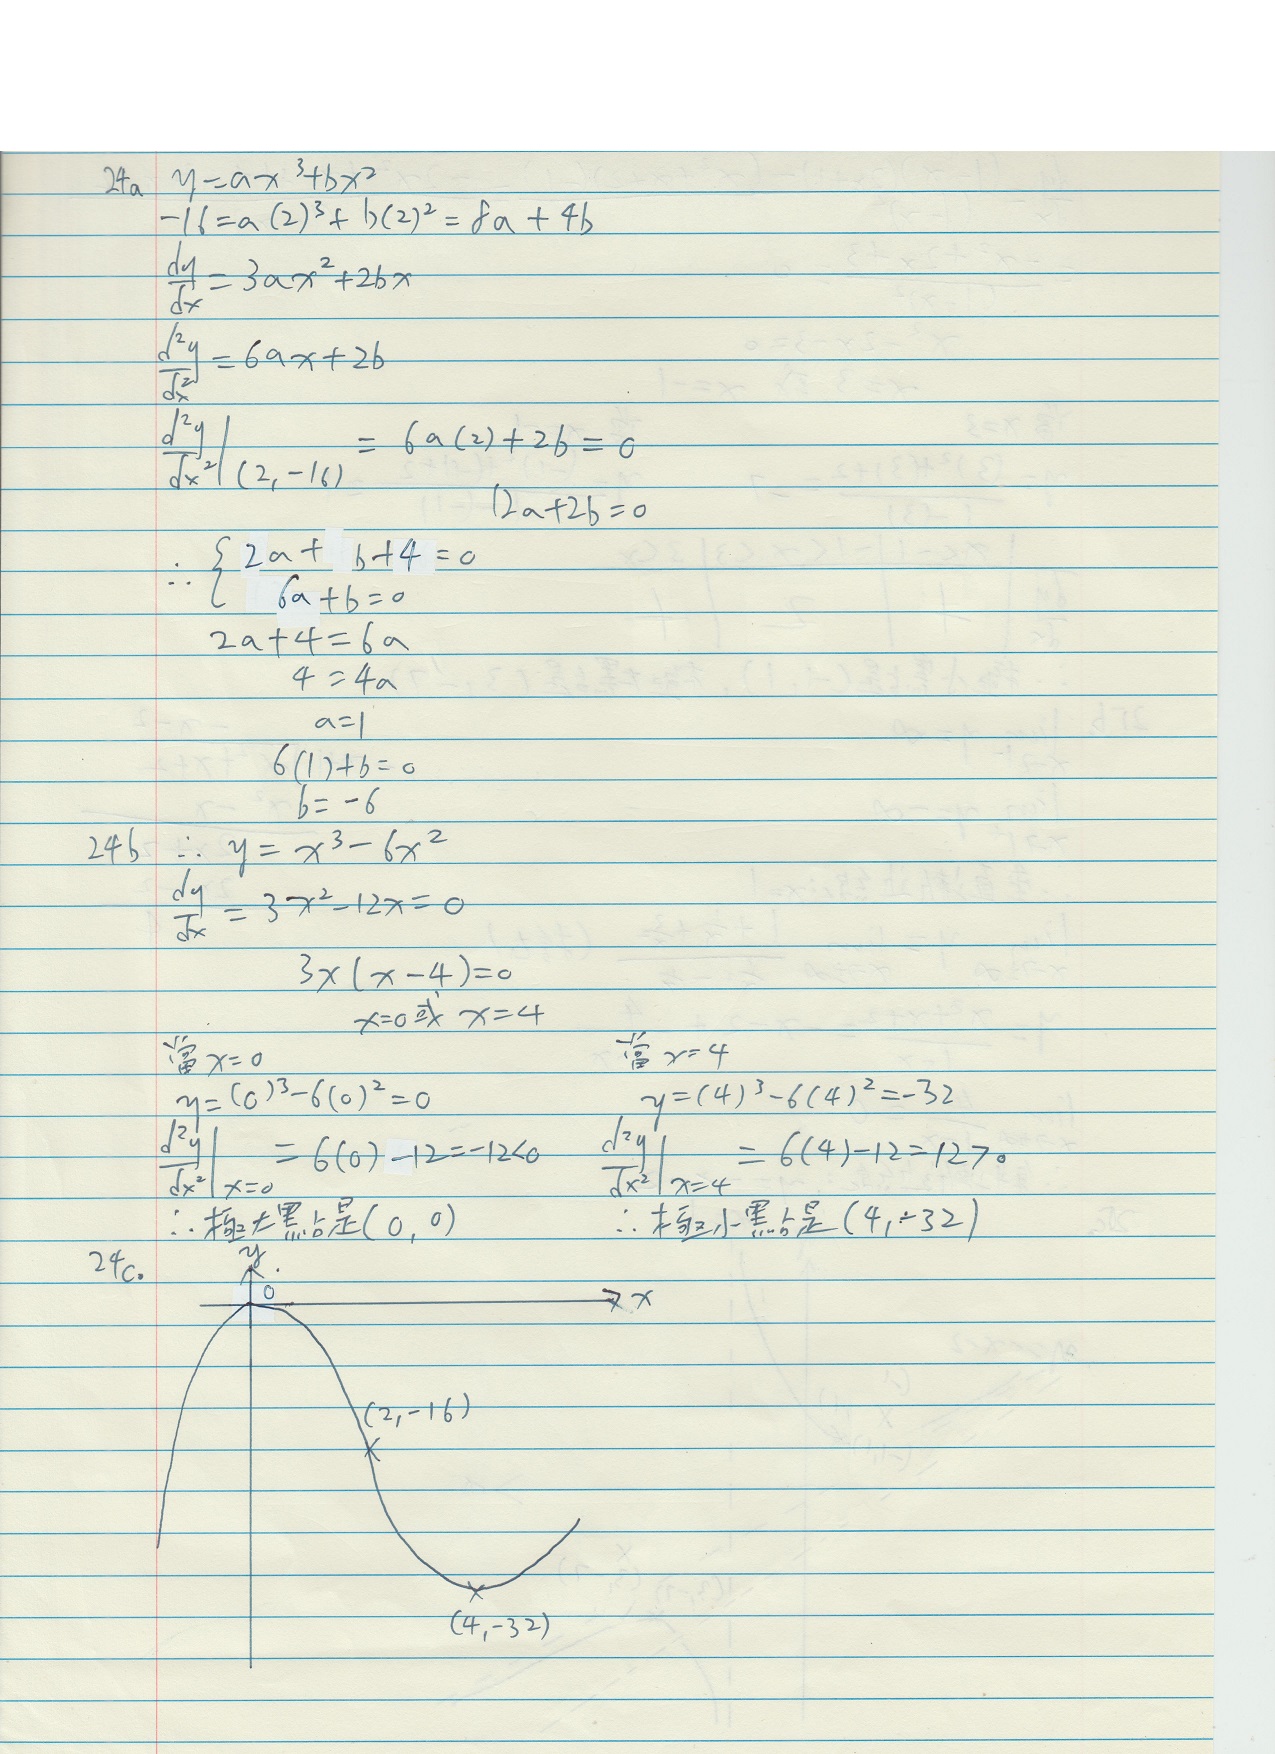 24a y=ax³+bx²
-16=a(2)³+b(2)²=8a+4b
dy/dx=3ax²+2bx
d²y/dx²=6ax+2b
d²y/dx²|(2,-16) = 6a(2)+2b=0
12a+2b=0
∴ { 2a+b+4=0
6a+b=0
2a+4=6a
4=4a
a=1
6(1)+b=0
b=-6
24b ∴ y=x³-6x²
dy/dx=3x²-12x=0
3x(x-4)=0
x=0或x=4
當x=0 當x=4
y=(0)³-6(0)²=0 y=(4)³-6(4)²=-32
d²y/dx²|x=0 =6(0)-12=-12<0 d²y/dx²|x=4 =6(4)-12=12>0
∴極大點是(0,0) ∴極小點是(4,-32)
24c.
y
0
x
(2,-16)
(4,-32)